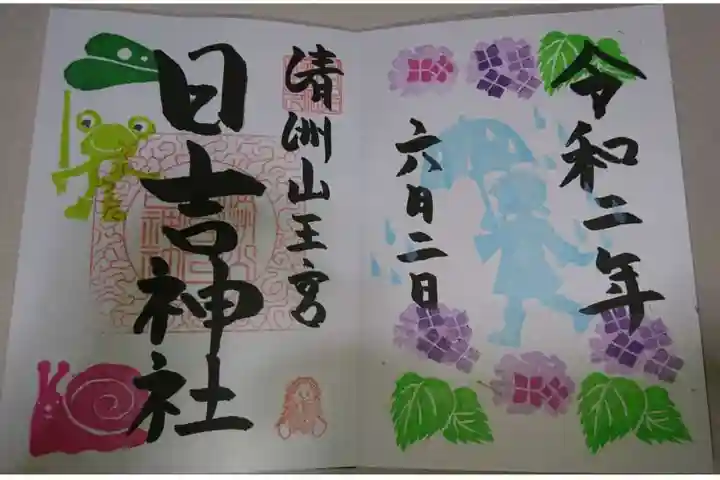 令和二年
六月二日
清洲山王宮
日吉神社